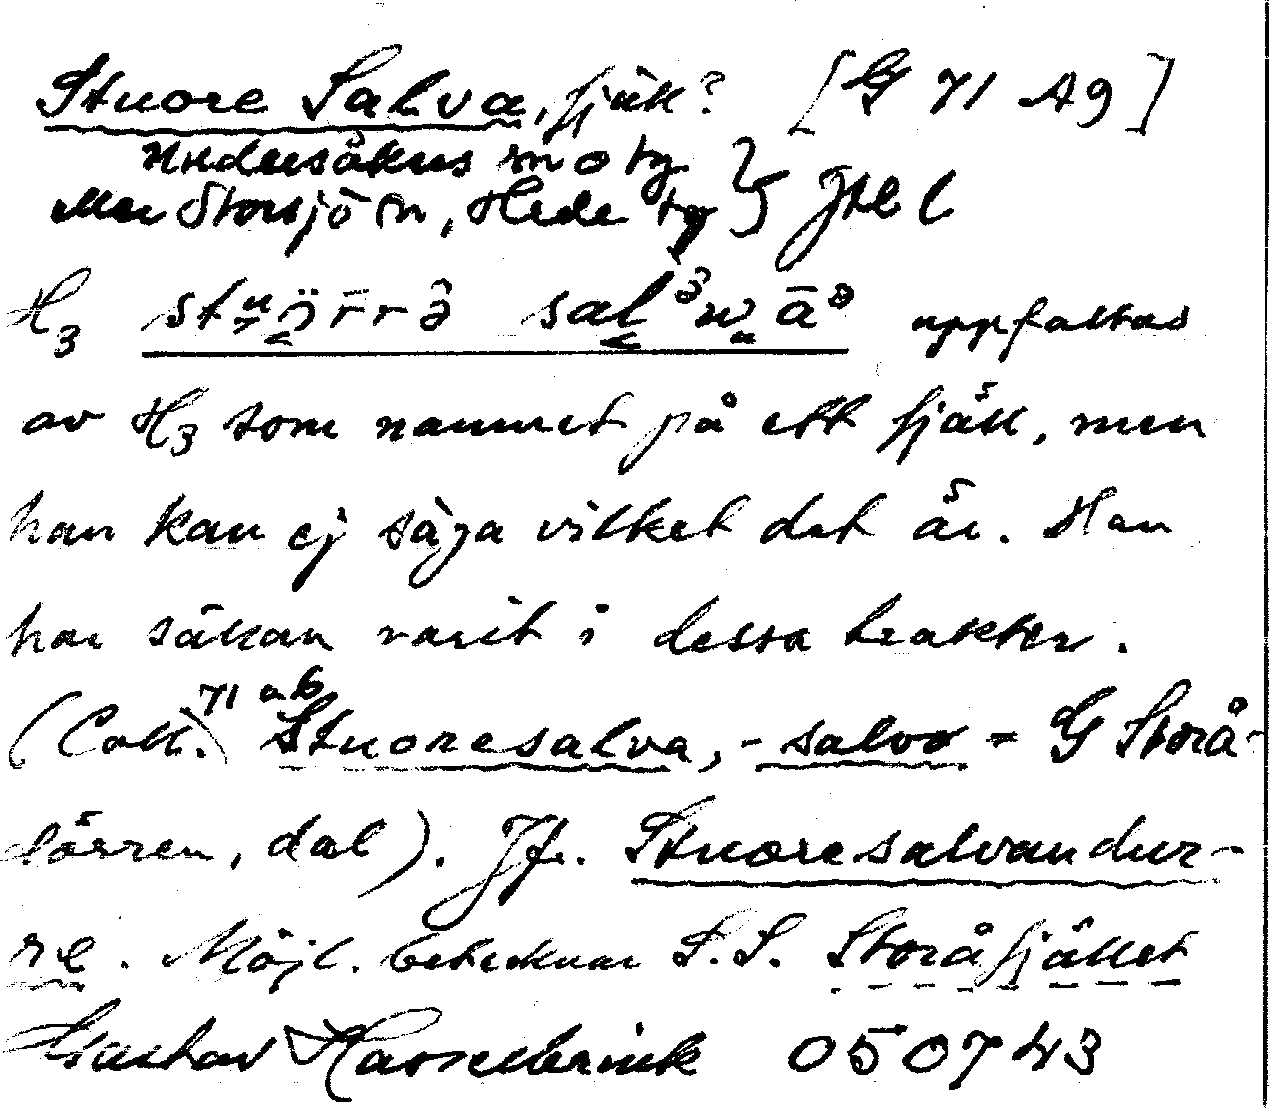 Stuore Salva, fjäll? [G 71 A9]
Undersåkers sn o tg } Jtl l
eller Storsjö sn, Hede tg
H3 stu̯ɔ̈r̄rə̂ salᵊwāᵊ uppfattas
av H3 som namnet på ett fjäll, men
han kan ej säga vilket det är. Han
har sällan varit i dessa trakter.
(Coll. 71 ab Stuoresalva, -salvo = G Storå-
dörren, dal). Jfr. Stuoresalvandur-
re. Möjl. betecknar S.S. Storåfjället
Gustav Hasselbrink 050743